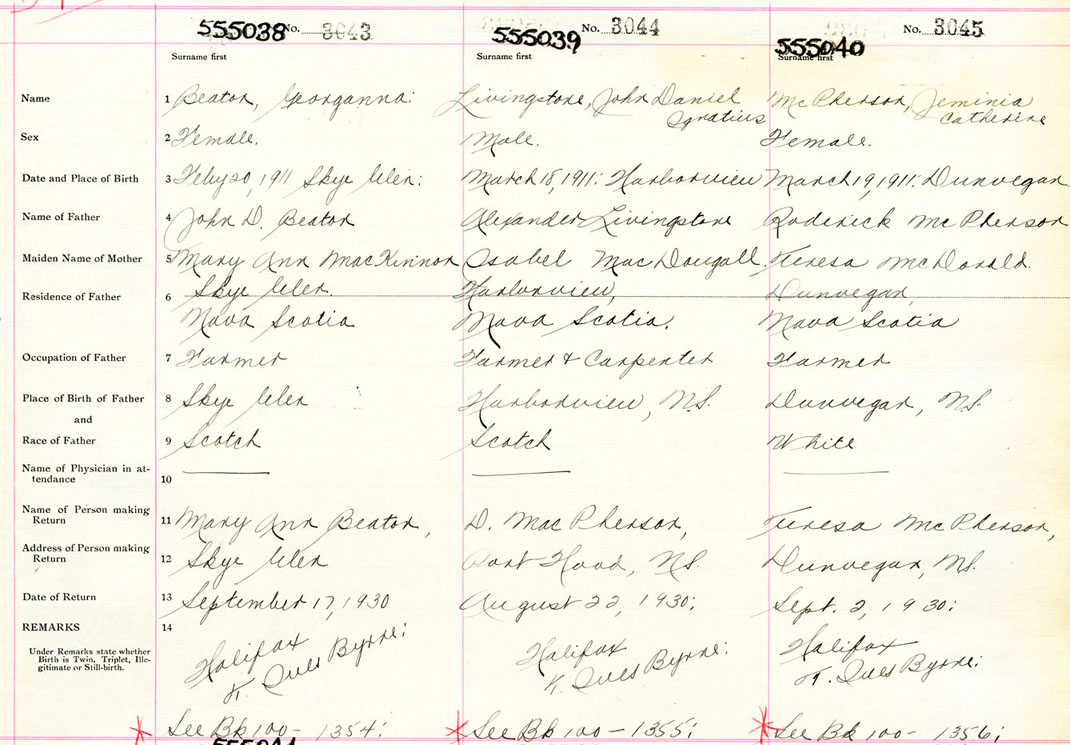 555038 No. 3043 555039 No. 3044 555040 No. 3045
Surname first Surname first
Name 1 Beaton, Georganna: Livingstone, John Daniel Ignatius McPherson, Jeminia Catherine
Sex 2 Female. Male. Female.
Date and Place of Birth 3 Feby 20, 1911 Skye Glen: March 18, 1911: Harborview March 19, 1911: Dunvegan
Name of Father 4 John D. Beaton Alexander Livingstone Roderick McPherson
Maiden Name of Mother 5 Mary Ann MacKinnon Isabel MacDougall. Teresa McDonald.
Residence of Father 6 Skye Glen. Harborview, Dunvegan,
Nova Scotia Nova Scotia. Nova Scotia
Occupation of Father 7 Farmer Farmer & Carpenter Farmer
Place of Birth of Father 8 Skye Glen Harborview, N.S. Dunvegan, N.S.
and
Race of Father 9 Scotch Scotch White
Name of Physician in at-
tendance 10
Name of Person making
Return 11 Mary Ann Beaton, D. MacPherson, Teresa McPherson,
Address of Person making
Return 12 Skye Glen Port Hood, N.S. Dunvegan, N.S.
Date of Return 13 September 17, 1930 August 22, 1930; Sept. 2, 1930;
REMARKS 14
Under Remarks state whether
Birth is Twin, Triplet, Ille-
gitimate or Still-birth.
Halifax Halifax Halifax
Byrne: Byrne: Byrne:
See Bk 100 - 1354; See Bk 100 - 1355; See Bk 100 - 1356;